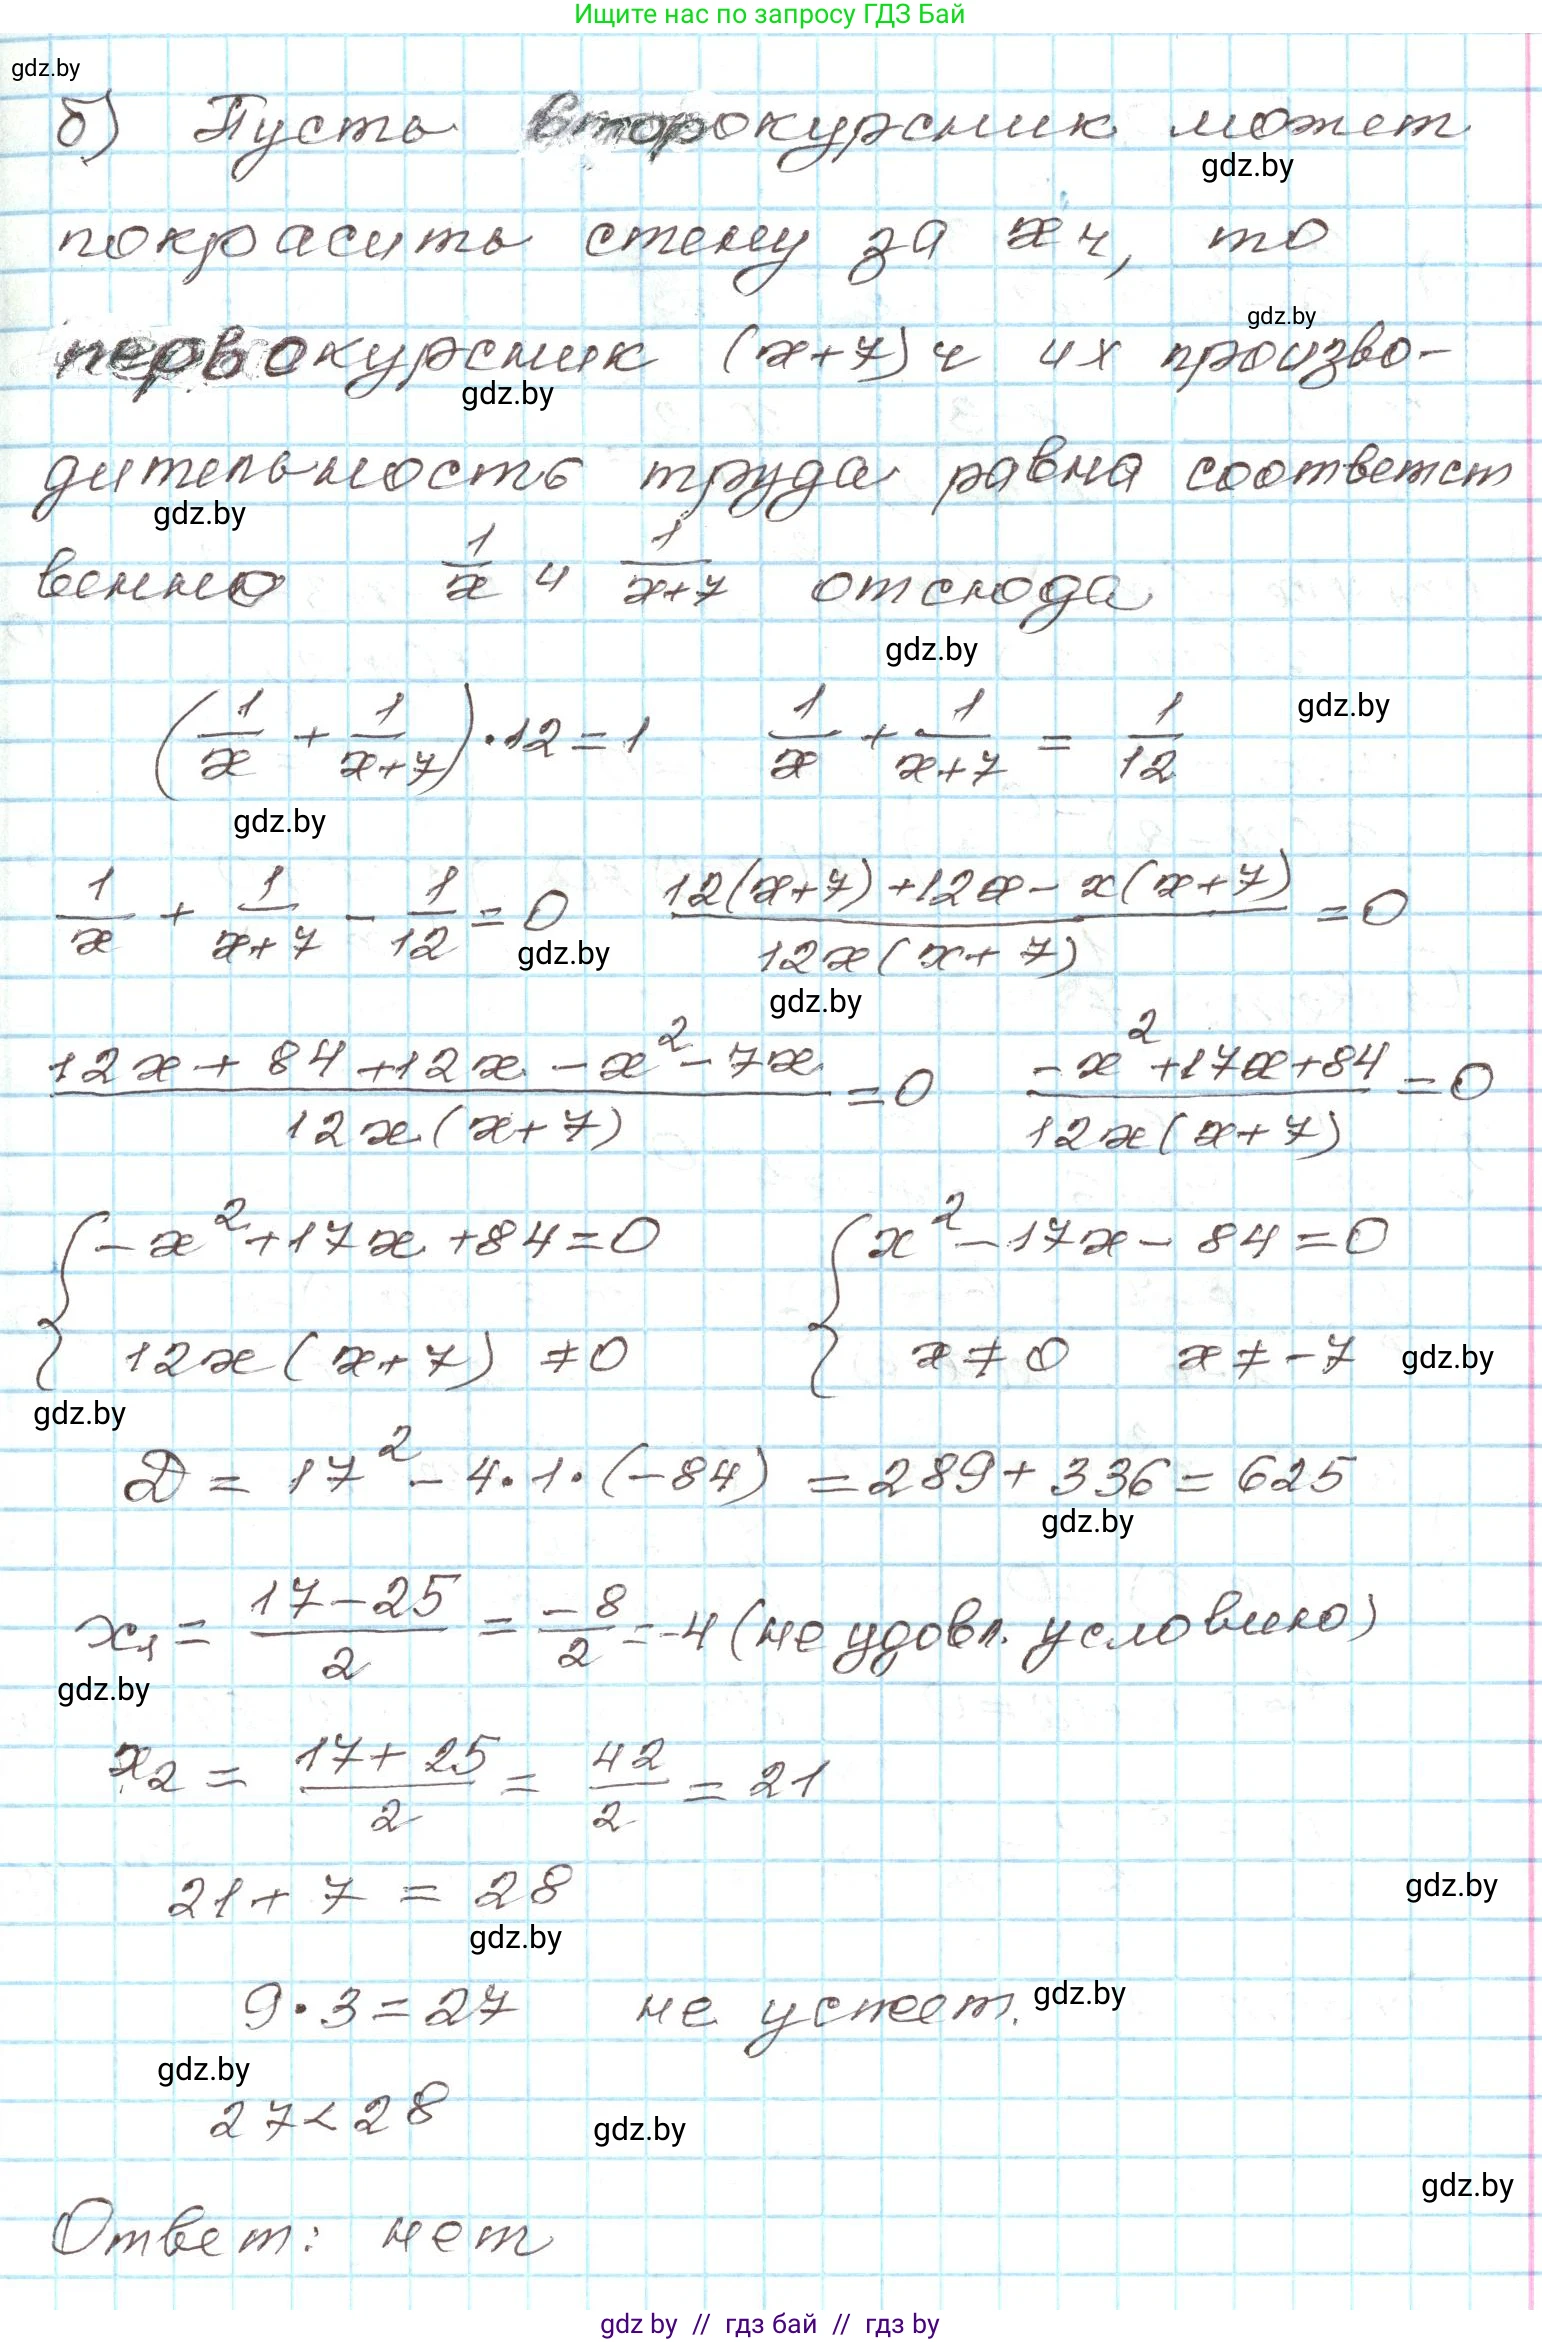 Ищите нас по запросу ГДЗ Бай
gdz.by
б) Пусть второкурсник может
gdz.by
покрасить стену за x ч, то
gdz.by
первокурсник (x+7) ч их произво-
gdz.by
дительность труда равна соответст
gdz.by
венно 1/x и 1/(x+7) отсюда
gdz.by
(1/x + 1/(x+7)) · 12 = 1    1/x + 1/(x+7) = 1/12
gdz.by
gdz.by
1/x + 1/(x+7) - 1/12 = 0    (12(x+7) + 12x - x(x+7))/(12x(x+7)) = 0
gdz.by
gdz.by
(12x + 84 + 12x - x² - 7x)/(12x(x+7)) = 0    (-x² + 17x + 84)/(12x(x+7)) = 0
{ -x² + 17x + 84 = 0    { x² - 17x - 84 = 0
12x(x+7) ≠ 0    x ≠ 0    x ≠ -7
gdz.by
gdz.by
Д = 17² - 4·1·(-84) = 289 + 336 = 625
gdz.by
x₁ = (17-25)/2 = -8/2 = -4 (не удовл. условию)
gdz.by
x₂ = (17+25)/2 = 42/2 = 21
21 + 7 = 28
gdz.by
gdz.by
9·3 = 27    не успеет.
gdz.by
gdz.by
27 < 28
gdz.by
gdz.by
Ответ: нет
gdz by // гдз бай // гдз by